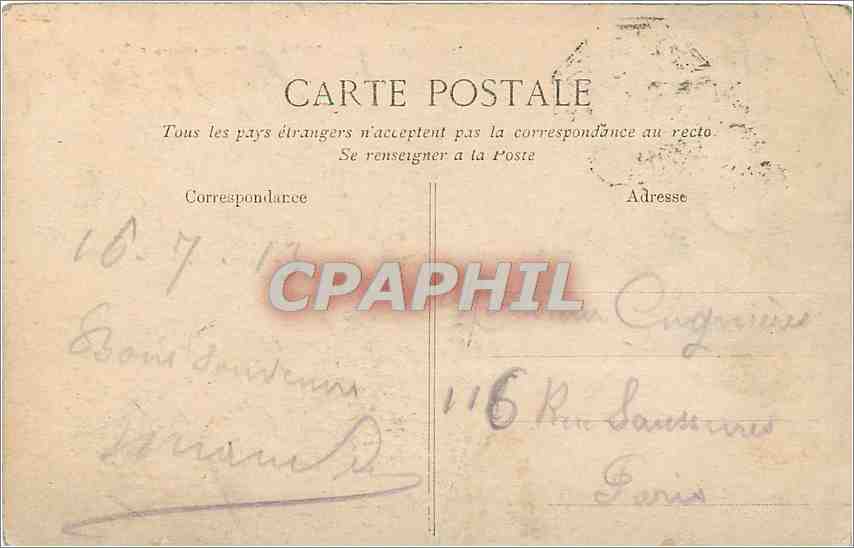 CARTE POSTALE
Tous les pays étrangers n'acceptent pas la correspondance au recto.
Se renseigner a la Poste
Correspondance
Adresse
16.7.1
CPAPHIL
Bons Souvenirs
116 Rue Saussures
Paris